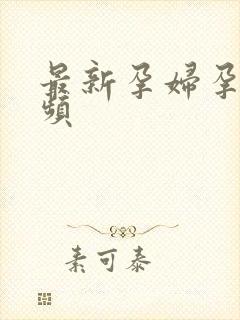 最新孕婦孕
頻
素可泰